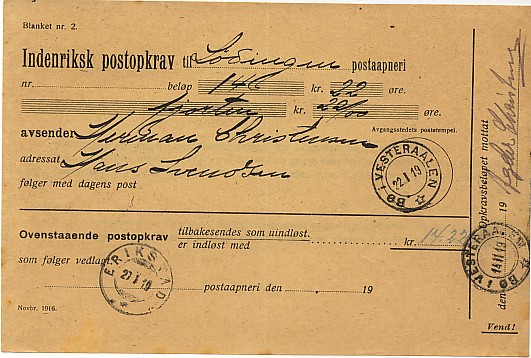 Blanket nr. 2.
Indenriksk postopkrav til Lödingen postaapneri
nr. beløp 14 kr. 22 øre.
fjorten kr. 22/00 øre.
avsender Herman Christensen
Avgangsstedets poststempel.
adressat Hans Svendsen
følger med dagens post
BØ I VESTERAALEN
22.1.19
Ovenstaaende postopkrav tilbakesendes som uindløst.
er indløst med kr. 14.22
som følger vedlagt.
ERIKSTAD
27 I 19
postaapneri den 19
Novbr. 1916.
Opkravsbeløpet mottat
den 19
BØ I VESTERAALEN
14 II 19
Vend!